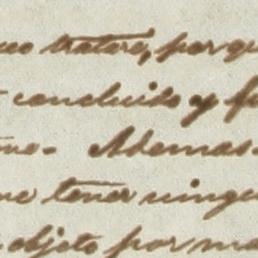 tratará, porqu
concluido y f
Ademas
tener ningu
objeto por ma